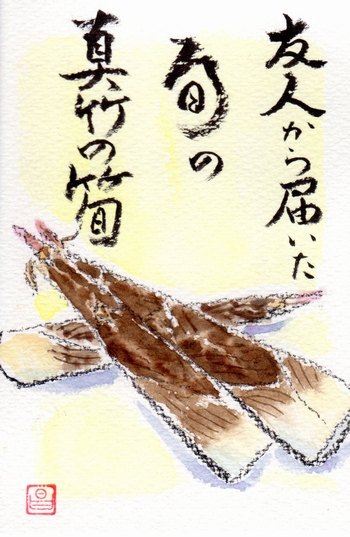 友人から届いた
旬の
真竹の筍